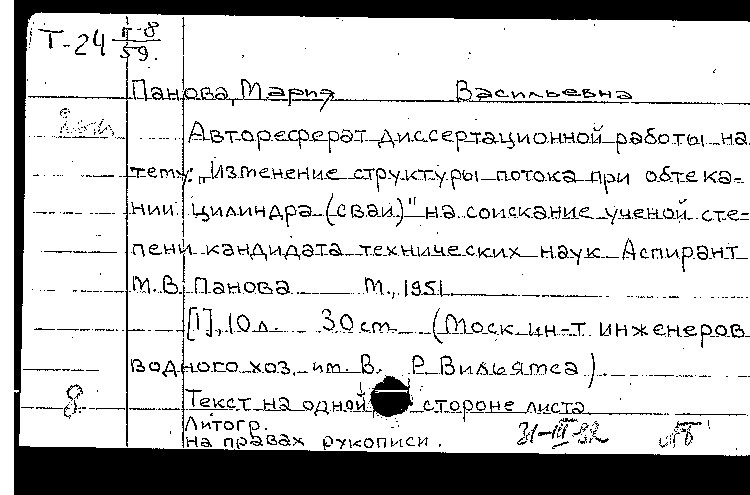 Т-24 Г-8
59.
Панова, Мария Васильевна
Автореферат диссертационной работы на
тему: „Изменение структуры потока при обтека-
нии цилиндра (сваи)" на соискание ученой сте-
пени кандидата технических наук Аспирант
М.В. Панова М., 1951
[1], 10 л. 30 см (Моск. ин-т инженеров
водного хоз. им. В. Р. Вильямса).
8 Текст на одной стороне листа.
Литогр.
на правах рукописи. 31-III-52